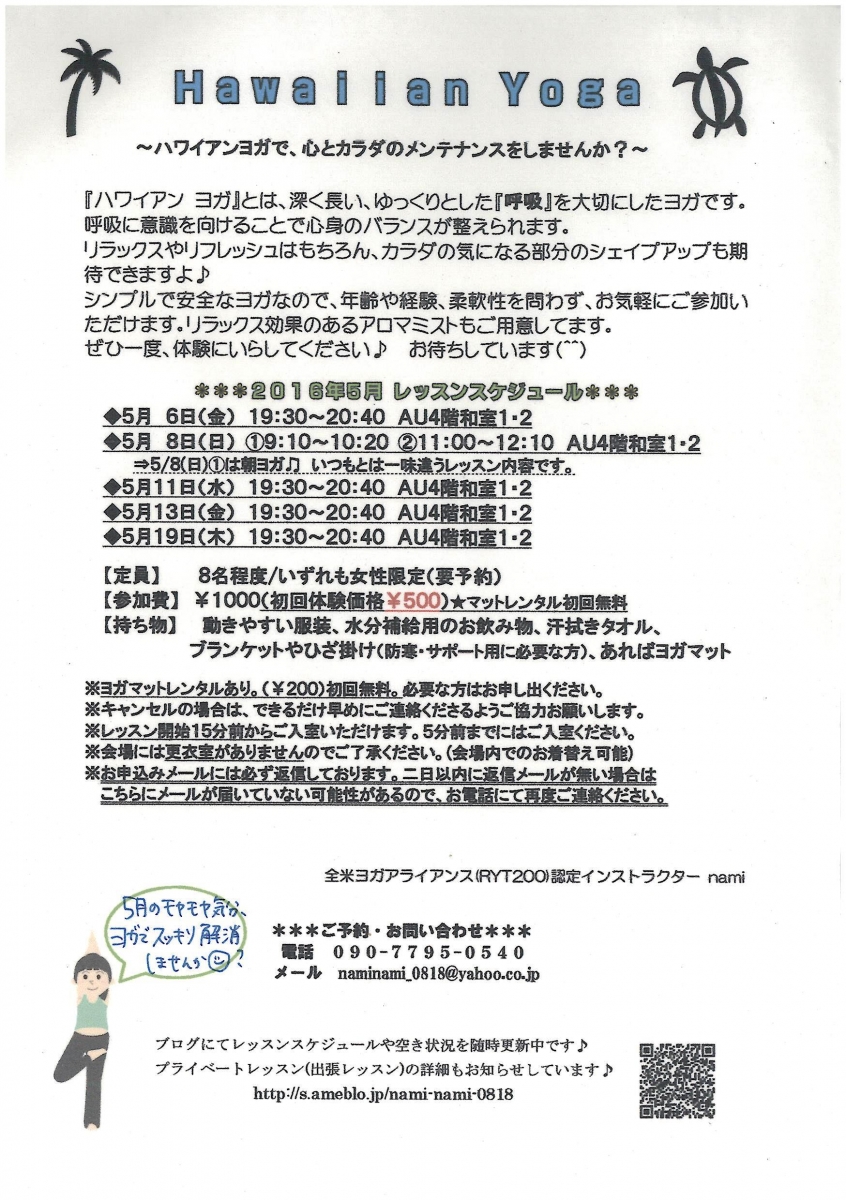 Hawaiian Yoga
～ハワイアンヨガで、心とカラダのメンテナンスをしませんか？～
『ハワイアン ヨガ』とは、深く長い、ゆっくりとした『呼吸』を大切にしたヨガです。
呼吸に意識を向けることで心身のバランスが整えられます。
リラックスやリフレッシュはもちろん、カラダの気になる部分のシェイプアップも期
待できますよ♪
シンプルで安全なヨガなので、年齢や経験、柔軟性を問わず、お気軽にご参加い
ただけます。リラックス効果のあるアロマミストもご用意してます。
ぜひ一度、体験にいらしてください♪　お待ちしています(^^)
＊＊＊２０１６年５月 レッスンスケジュール＊＊＊
◆5月　6日(金)　19:30～20:40　AU4階和室1・2
◆5月　8日(日)　①9:10～10:20　②11:00～12:10　AU4階和室1・2
⇒5/8(日)①は朝ヨガ♫　いつもとは一味違うレッスン内容です。
◆5月11日(水)　19:30～20:40　AU4階和室1・2
◆5月13日(金)　19:30～20:40　AU4階和室1・2
◆5月19日(木)　19:30～20:40　AU4階和室1・2
【定員】　8名程度/いずれも女性限定(要予約)
【参加費】　￥1000(初回体験価格￥500)★マットレンタル初回無料
【持ち物】　動きやすい服装、水分補給用のお飲み物、汗拭きタオル、
ブランケットやひざ掛け(防寒・サポート用に必要な方)、あればヨガマット
※ヨガマットレンタルあり。(￥200)初回無料。必要な方はお申し出ください。
※キャンセルの場合は、できるだけ早めにご連絡くださるようご協力お願いします。
※レッスン開始15分前からご入室いただけます。5分前までにはご入室ください。
※会場には更衣室がありませんのでご了承ください。(会場内でのお着替え可能)
※お申込みメールには必ず返信しております。二日以内に返信メールが無い場合は
こちらにメールが届いていない可能性があるので、お電話にて再度ご連絡ください。
全米ヨガアライアンス(RYT200)認定インストラクター nami
5月のモヤモヤ気分、
ヨガでスッキリ解消
しませんか☺？
＊＊＊ご予約・お問い合わせ＊＊＊
電話　０９０-７７９５-０５４０
メール　naminami_0818@yahoo.co.jp
ブログにてレッスンスケジュールや空き状況を随時更新中です♪
プライベートレッスン(出張レッスン)の詳細もお知らせしています♪
http://s.ameblo.jp/nami-nami-0818